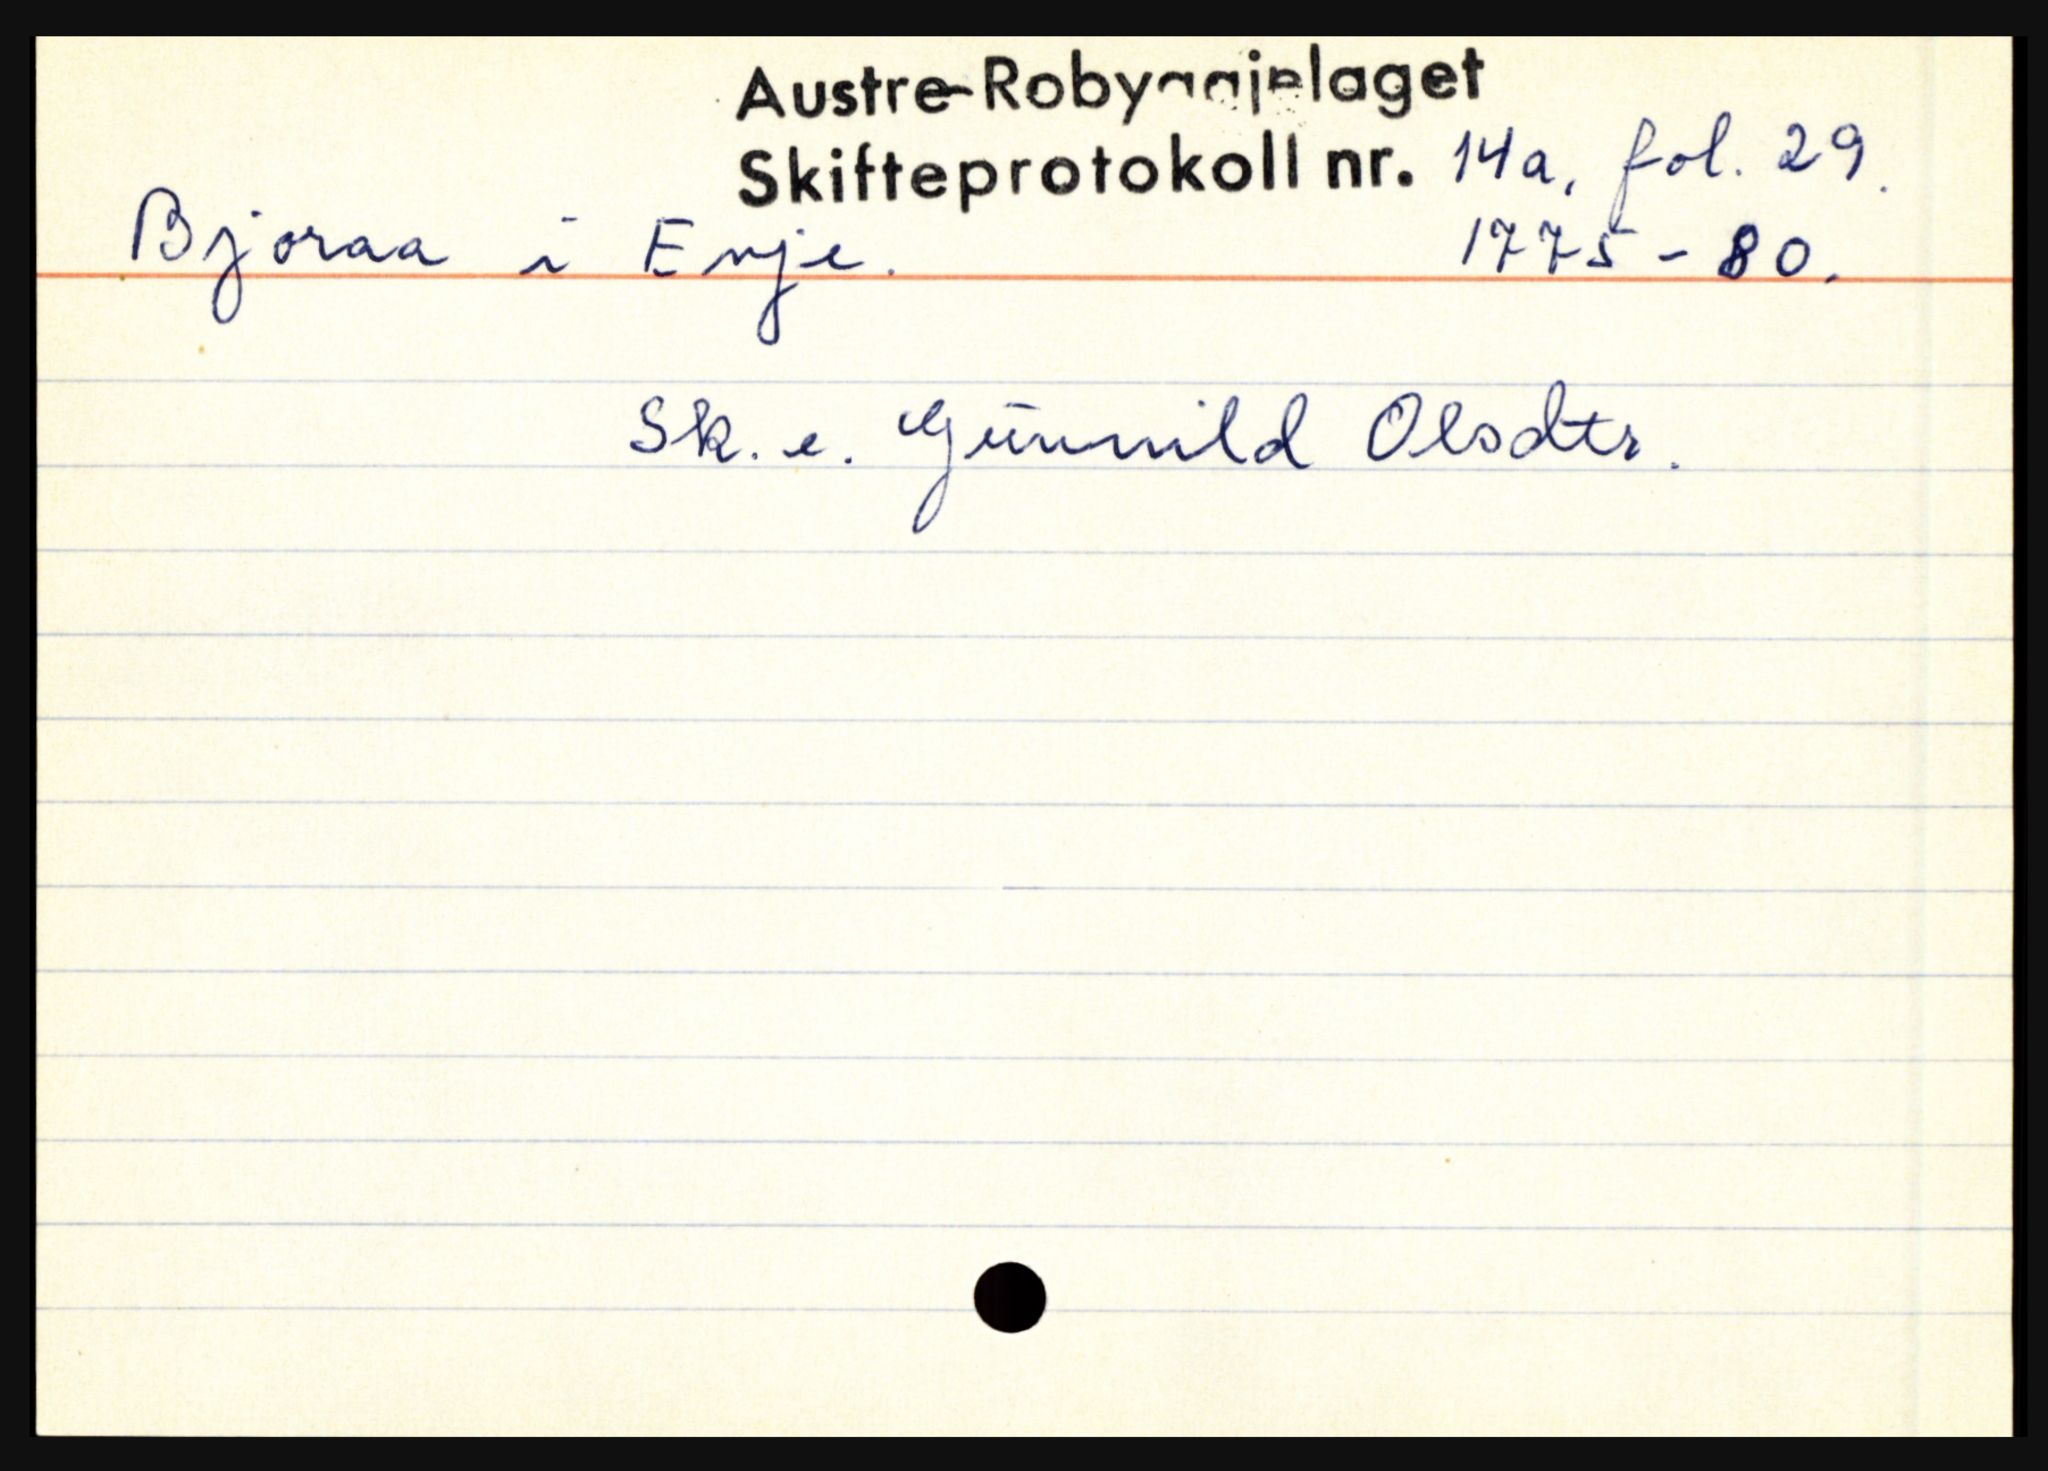 Austre-Robyggjelaget
Skifteprotokoll nr. 14a, fol. 29.
Bjoraa i Evje. 1775-80.
Sk. e. Gunnild Olsdtr.